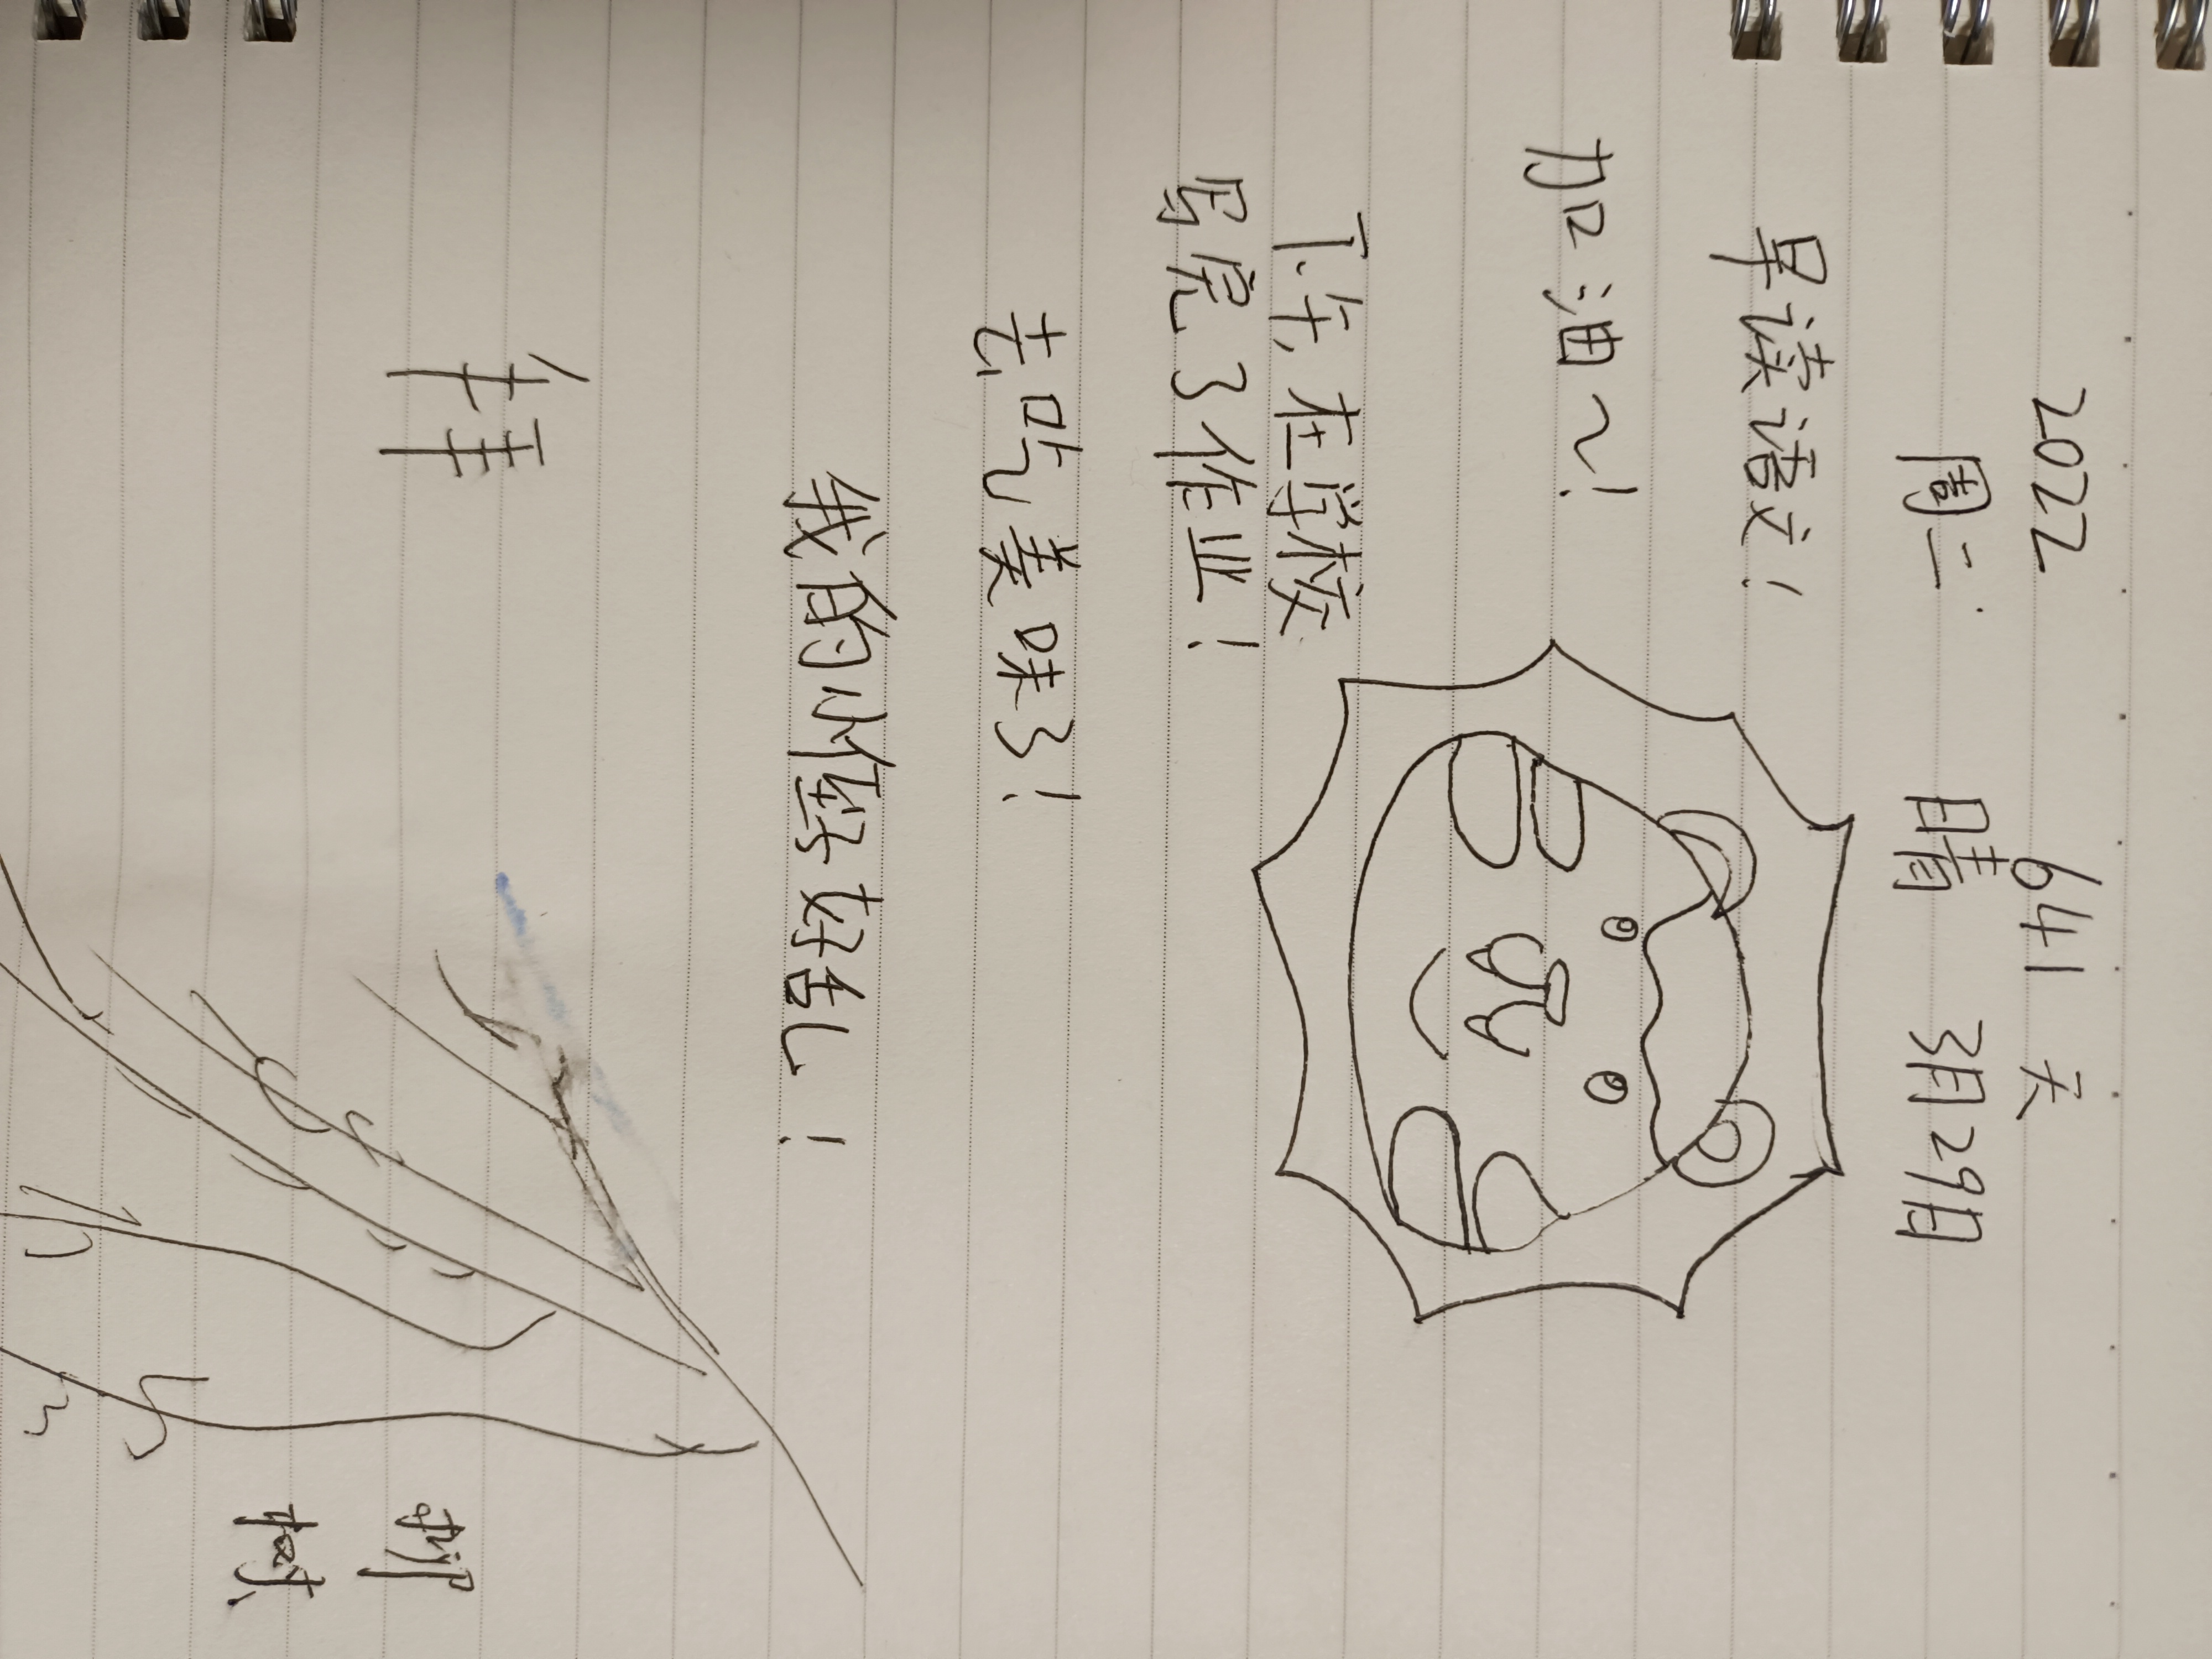 2022 641 天
周二. 晴 3月29日
早读语文!
加油~!
下午,在学校
写完了作业!
去吃美味了!
我的小侄子好乱!
柳
树